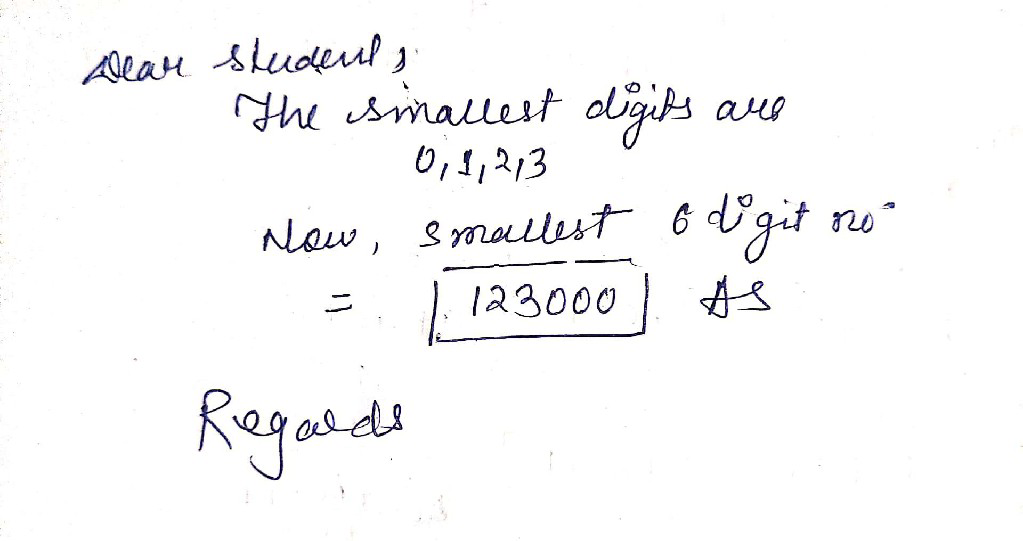 Dear Student,
The smallest digits are
0,1,2,3
Now, smallest 6 digit no
= 123000 AS
Regards